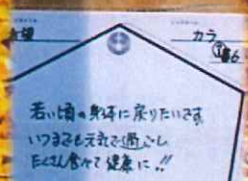 望
カラ
若い頃の身体に戻りたいです。
いつまでも元気で過ごし
たくさん食べて健康に!!